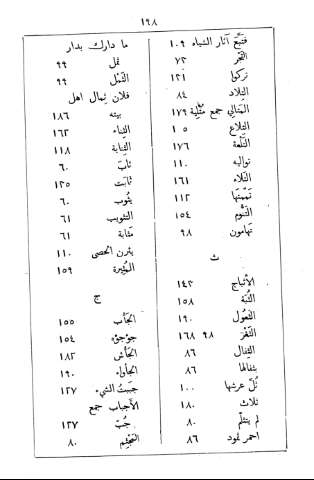 ١٩٨
فتتبّع آثار الشتاء ١٠٩
التّجر ٧٣
تركوا ١٣١
التِلاد ٨٤
المَتالي جمع مُتْلِية ١٧٩
التِلاع ١٠٥
التَلْعة ١٧٦
تواليه ١١٠
التَلاء ١٦١
١١٢
التَنّوم ١٥٤
تهامون ٩٨
ث
الأثباج ١٤٣
الثُبَة ١٥٨
الثَعُول ١٩٠
الثَغْر ٩٨ ١٦٨
الثِفال ٨٦
بثفالها ٨٦
ثُلّ عرشها ١٠٠
ثلاث ١٨٠
لم يتثلّم ٨٠
احمر ثمود ٨٦
ما دارك بدار
ثمل ٩٩
الثَمْل ٩٩
فلان ثِمال اهل
بيته ١٨٦
الثِناء ١٦٢
الثِناية ١١٨
ثابَ ٦٠
ثابت ١٢٥
يثوب ٦٠
التثويب ٦١
مَثابة ٦١
يثرن الحصى ١١٠
المُثيرة ١٥٩
ج
الجَأب ١٥٥
جؤجؤه ١٥٤
الجَأش ١٨٢
الجَأواء ١٩٠
جببتُ الشيء ١٢٧
الأجباب جمع
جُبّ ١٢٧
٨٠